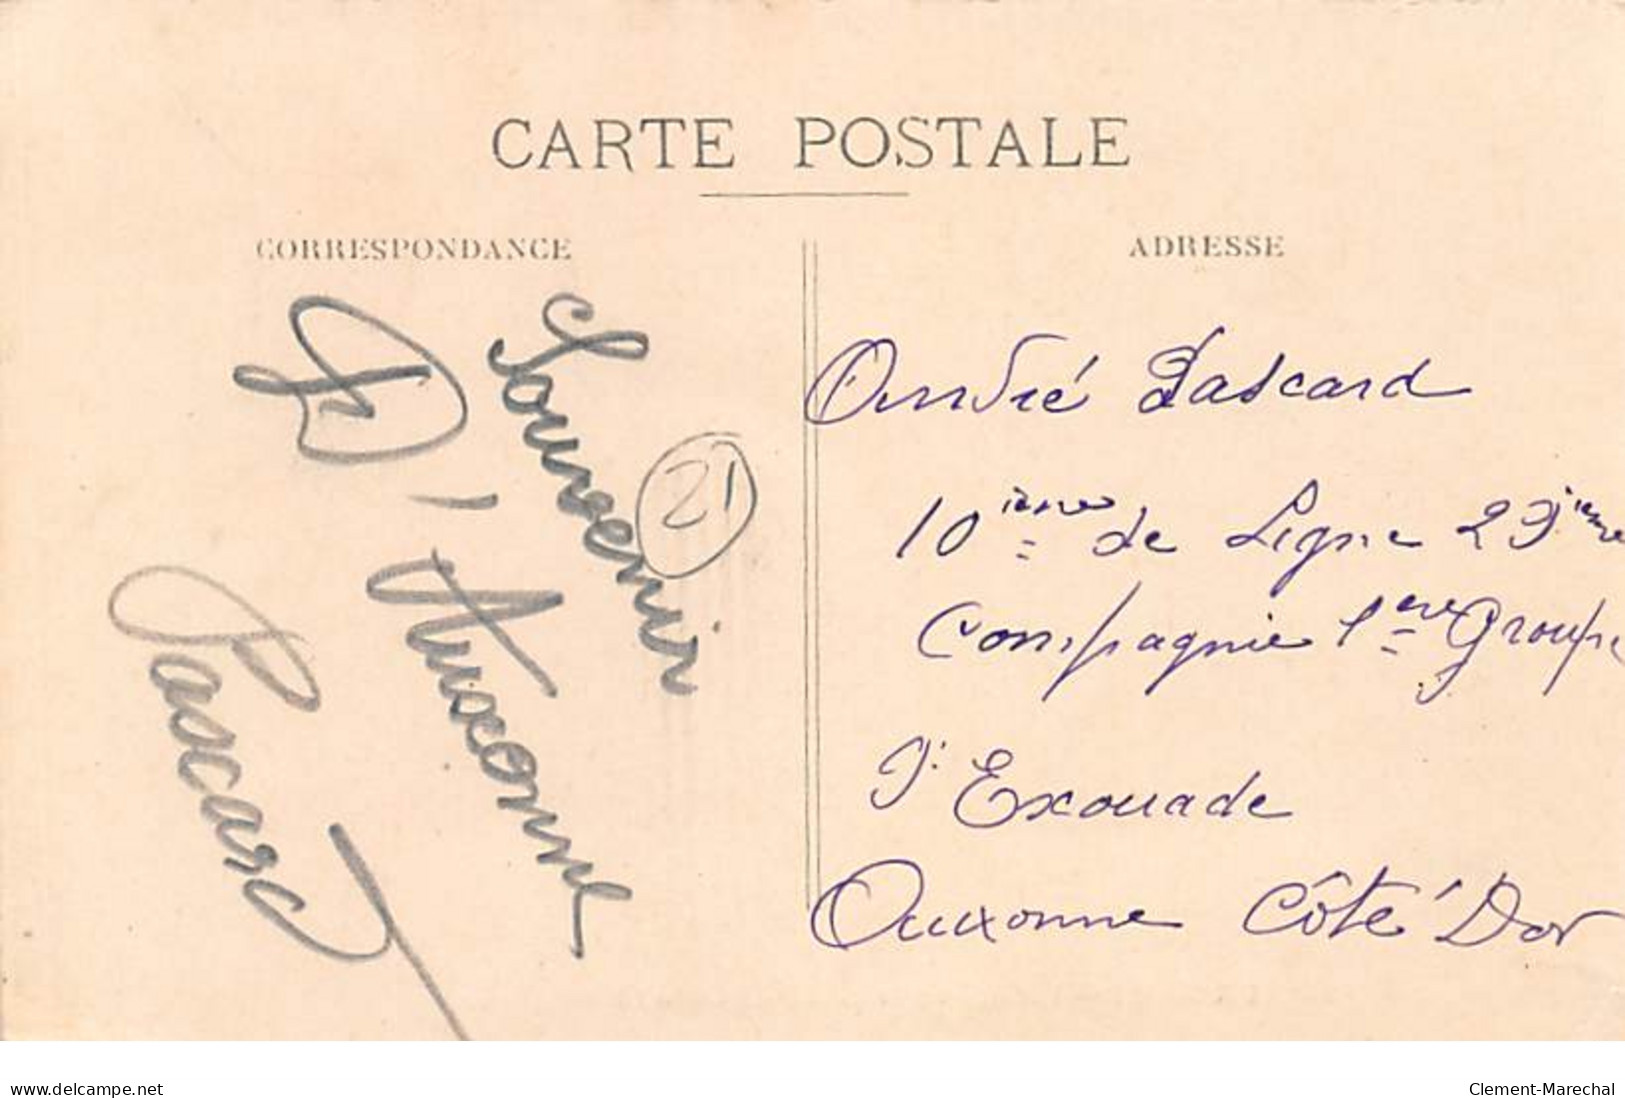 CARTE POSTALE
CORRESPONDANCE
Souvenir
D'Auxonne
Pascard
21
ADRESSE
André Pascard
10ième de Ligne 29ième
Compagnie 1ère Groupe
Exouade
Auxonne Côte'Dor
www.delcampe.net
Clement-Marechal